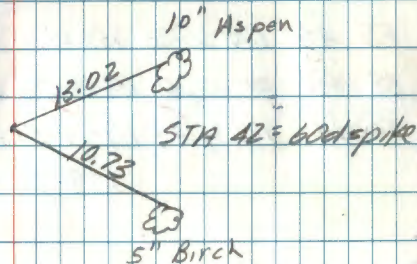 10" Aspen
13.02
STA 42 = 60d spike
10.73
5" Birch